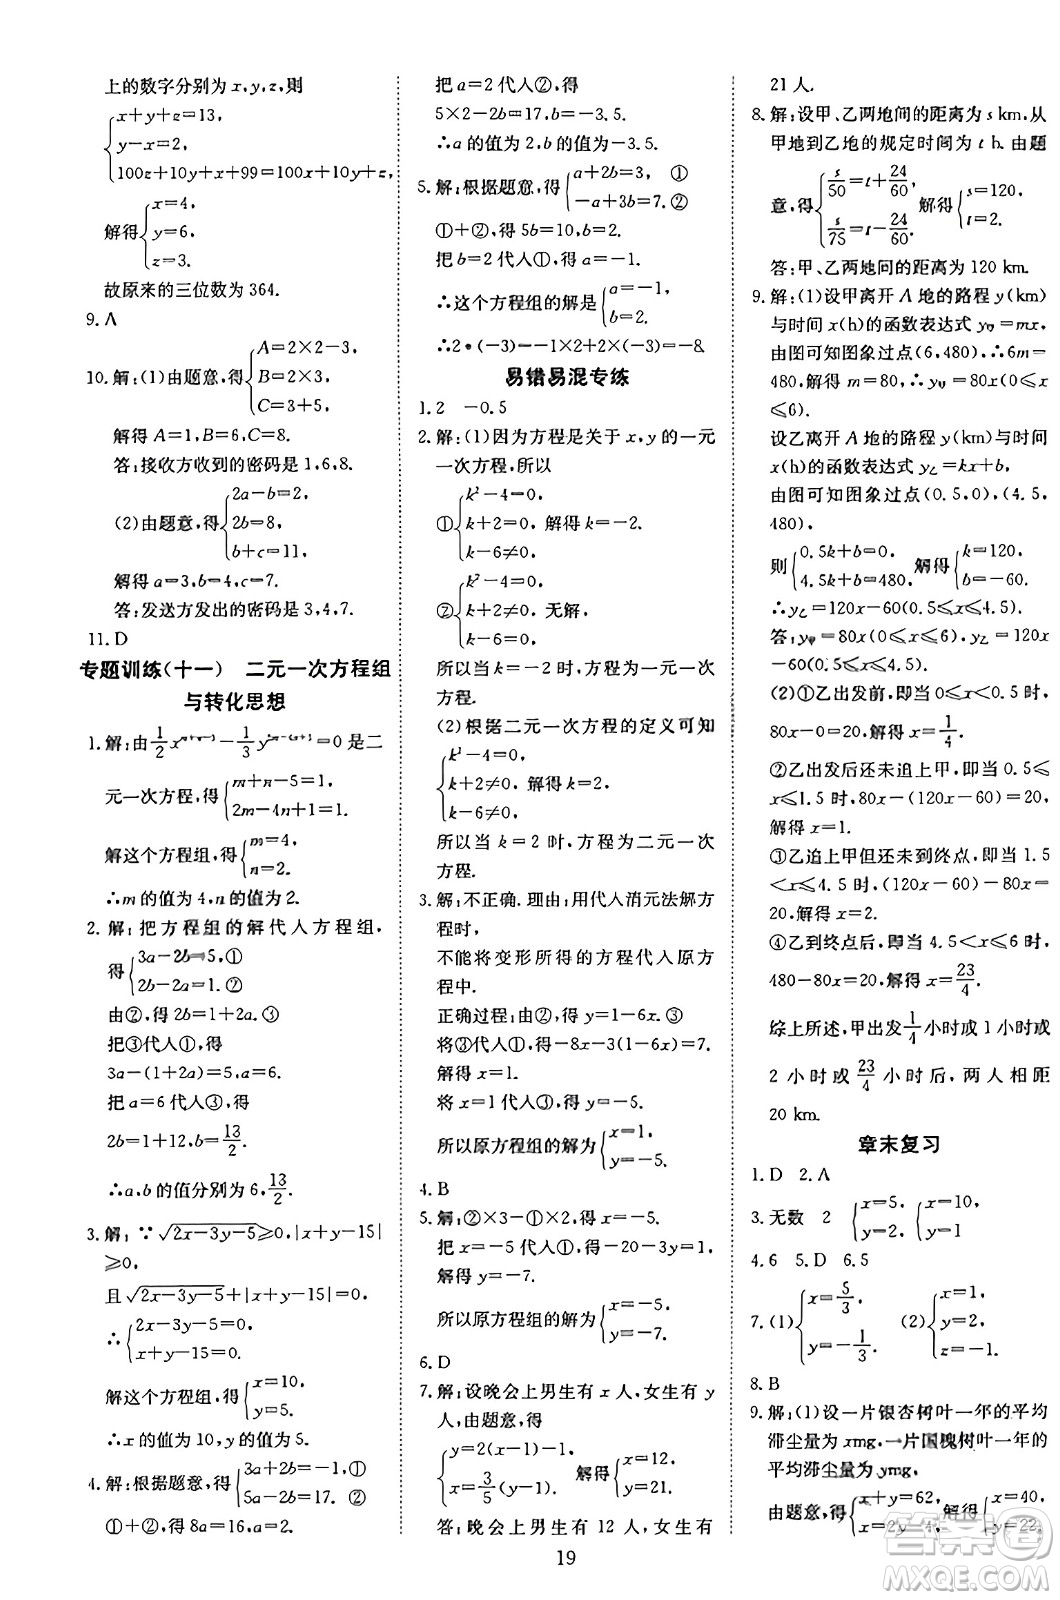 上的数字分别为 x,y,z,则
{x+y+z=13,
y-x=2,
100z+10y+x+99=100x+10y+z,
解得{x=4,
y=6,
z=3.
故原来的三位数为 364.
9. A
10. 解:(1)由题意,得{A=2×2-3,
B=2×3,
C=3+5,
解得 A=1,B=6,C=8.
答:接收方收到的密码是 1,6,8.
(2)由题意,得{2a-b=2,
2b=8,
b+c=11,
解得 a=3,b=4,c=7.
答:发送方发出的密码是 3,4,7.
11. D
专题训练(十一) 二元一次方程组
与转化思想
1. 解:由 1/2 x - 1/3 y =0 是二
元一次方程,得{m+n-5=1,
2m-4n+1=1,
解这个方程组,得{m=4,
n=2.
∴m 的值为 4,n 的值为 2.
2. 解:把方程组的解代人方程组,
得{3a-2b=5,①
2b-2a=1.②
由②,得 2b=1+2a.③
把③代人①,得
3a-(1+2a)=5,解得 a=6.
把 a=6 代人③,得
2b=1+12,b=13/2.
∴a,b 的值分别为 6,13/2.
3. 解:∵√(2x-3y-5)≥0,|x+y-15|
≥0,
且√(2x-3y-5)+|x+y-15|=0,
∴{2x-3y-5=0,
x+y-15=0.
解这个方程组,得{x=10,
y=5.
∴x 的值为 10,y 的值为 5.
4. 解:根据题意,得{3a+2b=-1,①
5a-2b=17.②
①+②,得 8a=16,a=2.
把 a=2 代人②,得
5×2-2b=17,b=-3.5.
∴a 的值为 2,b 的值为-3.5.
5. 解:根据题意,得{a+2b=3, ①
-a+3b=7.②
①+②,得 5b=10,b=2.
把 b=2 代人①,得 a=-1.
∴这个方程组的解是{a=-1,
b=2.
∴2*(-3)=-1×2+2×(-3)=-8.
易错易混专练
1. 2 -0.5
2. 解:(1)因为方程是关于 x,y 的一元
一次方程,所以
①{k²-4=0,
k+2=0, 解得 k=-2.
k-6≠0,
②{k²-4=0,
k+2≠0, 无解,
k-6=0,
所以当 k=-2 时,方程为一元一次
方程.
(2)根据二元一次方程的定义可知
{k²-4=0,
k+2≠0, 解得 k=2.
k-6≠0,
所以当 k=2 时,方程为二元一次
方程.
3. 解:不正确.理由:用代人消元法解方
程时,
不能将变形所得的方程代入原方
程中.
正确过程:由②,得 y=1-6x.③
将③代人①,得-8x-3(1-6x)=7.
解得 x=1.
将 x=1 代人③,得 y=-5.
所以原方程组的解为{x=1,
y=-5.
4. B
5. 解:②×3-①×2,得 x=-5.
把 x=-5 代人①,得-20-3y=1,
解得 y=-7.
所以原方程组的解为{x=-5,
y=-7.
6. D
7. 解:设晚会上男生有 x 人,女生有 y
人,由题意,得
{y=2(x-1)-1,
x=3/5(y-1), 解得{x=12,
y=21.
答:晚会上男生有 12 人,女生有
21 人.
8. 解:设甲、乙两地间的距离为 s km,从
甲地到乙地的规定时间为 t h.由题
意,得{s/50=t+24/60,
s/75=t-24/60, 解得{s=120,
t=2.
答:甲、乙两地间的距离为 120 km.
9. 解:(1)设甲离开 A 地的路程 y(km)
与时间 x(h)的函数表达式 y甲=mx,
由图可知图象过点(6,480),∴6m=
480,解得 m=80,∴y甲=80x(0≤x
≤6).
设乙离开 A 地的路程 y(km)与时间
x(h)的函数表达式 y乙=kx+b,
由图可知图象过点(0.5,0),(4.5,
480),
则{0.5k+b=0,
4.5k+b=480, 解得{k=120,
b=-60.
∴y乙=120x-60(0.5≤x≤4.5).
答:y甲=80x(0≤x≤6),y乙=120x
-60(0.5≤x≤4.5).
(2)①乙出发前,即当 0≤x<0.5 时
80x-0=20,解得 x=1/4.
②乙出发后还未追上甲,即当 0.5≤
x≤1.5 时,80x-(120x-60)=20,
解得 x=1.
③乙追上甲但还未到终点,即当 1.5
<x≤4.5 时,(120x-60)-80x=
20,解得 x=2.
④乙到终点后,即当 4.5<x≤6 时,
480-80x=20,解得 x=23/4.
综上所述,甲出发 1/4 小时或 1 小时或
2 小时或 23/4 小时后,两人相距
20 km.
章末复习
1. D 2. A
3. 无数 2 {x=5,
y=1, {x=10,
y=2
4. 6 5. D 6. 5
7. (1){x=5/3,
y=-1/3. (2){x=1,
y=2,
z=-1.
8. B
9. 解:(1)设一片银杏树叶一年的平均
滞尘量为 xmg,一片国槐树叶一年的
平均滞尘量为 ymg,
由题意,得{x+y=62,
x=2y-4, 解得{x=40,
y=22.
19
答案圈
MXQE.COM